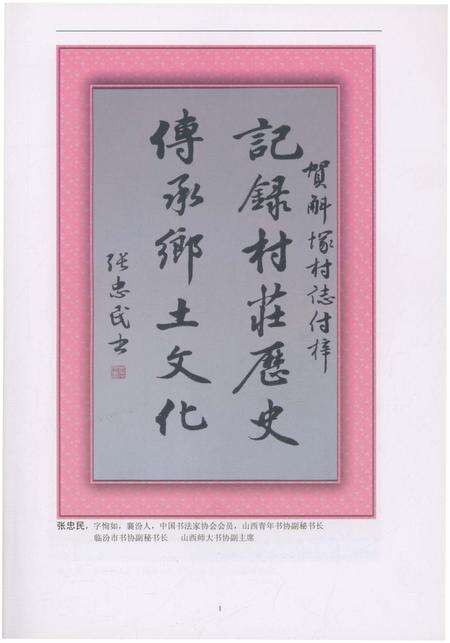 賀斛塚村誌付梓
記録村莊歷史
傳承鄉土文化
張忠民书
张忠民,字恂如,襄汾人,中国书法家协会会员,山西青年书协副秘书长
临汾市书协副秘书长 山西师大书协副主席
1